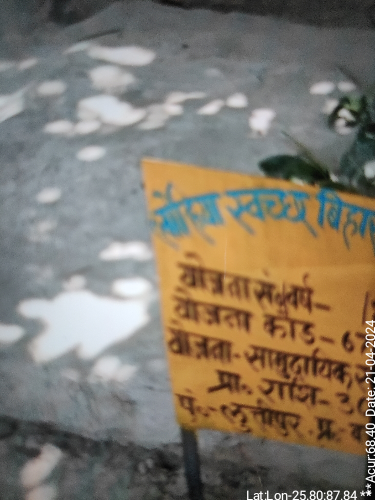 लोहिया स्वच्छ बिहार
योजना सं॰/वर्ष-
योजना कोड - 67
योजना - सामुदायिक
प्रा॰ राशि - 30
पं॰-
Lat:Lon-25.80:87.84 ***Acur:68.40 Date: 21-04-2024